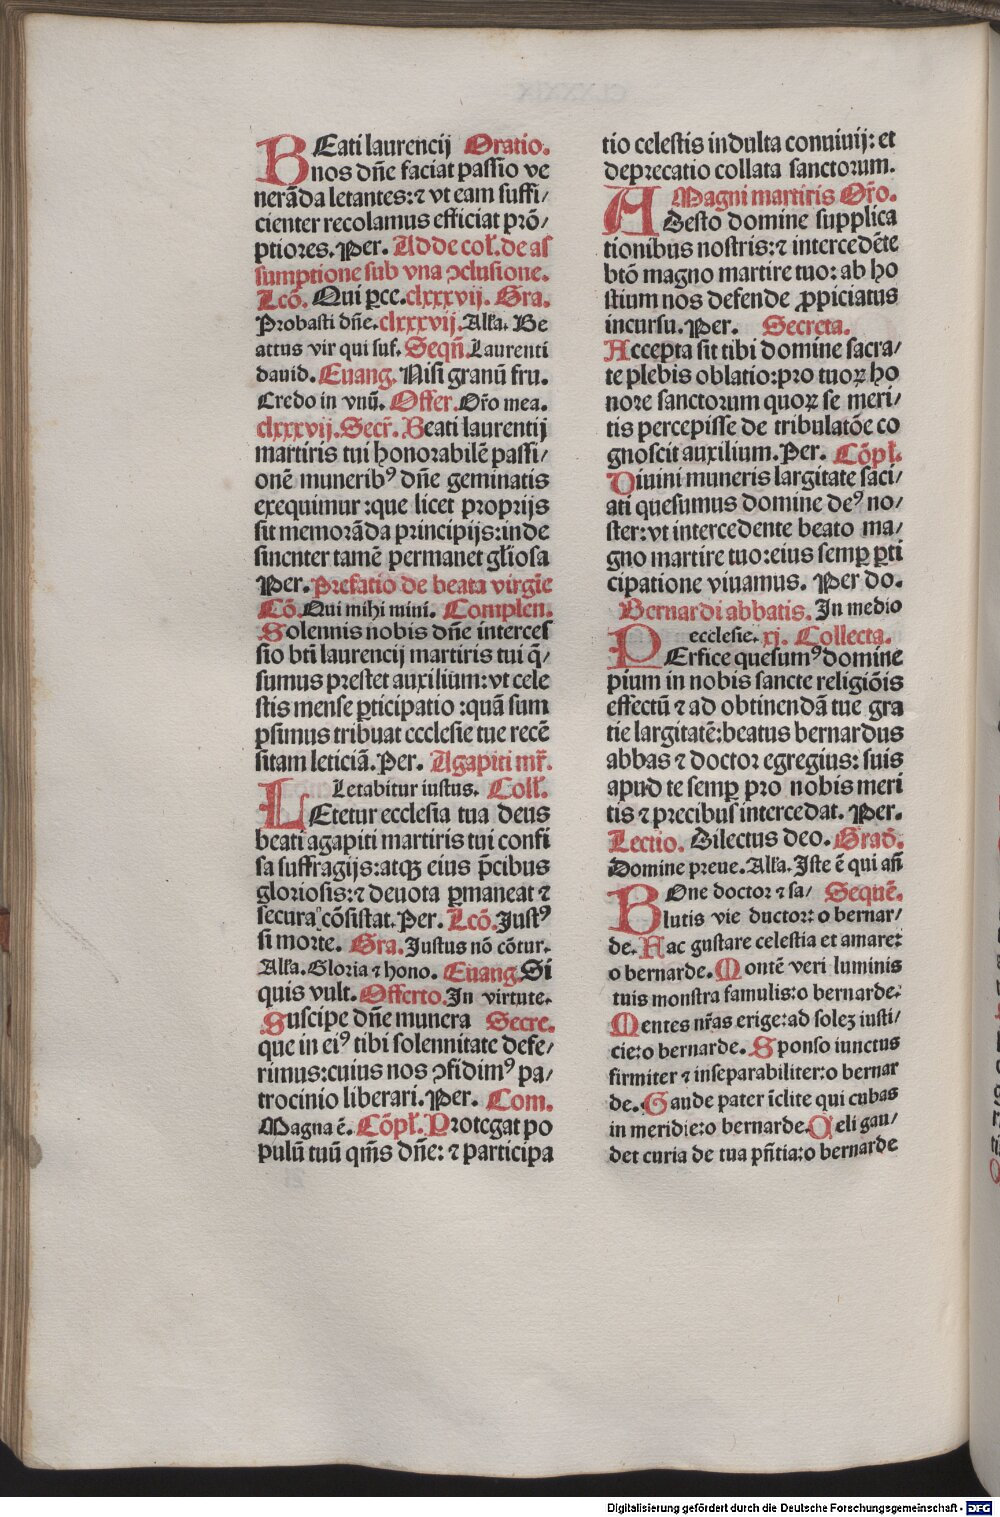 BEati laurencij Oratio.
nos dn̄e faciat passio ve
nerāda letantes:⁊ vt eam suffi/
cienter recolamus efficiat prō/
ptiores. Per. Adde col̄. de as
sumptione sub vna ↄclusione.
Lcō. Qui ꝑce.clxxxvij. Gra.
Probasti dn̄e.clxxxvij.Alľa. Be
atus vir qui suf. Seqn̄. Laurenti
dauid. Euang. Nisi granū fru.
Credo in vnū. Offer. Or̄o mea.
clxxxvij. Secr̄. Beati laurentij
martiris tui honorabilē passi/
onē muneribꝰ dn̄e geminatis
exequimur:que licet proprijs
sit memorāda principijs:inde
sinenter tamē permanet gl̄iosa
Per. Prefatio de beata virgīe
Cō. Qui mihi mini. Complen.
Solennis nobis dn̄e interces
sio bt̄i laurencij martiris tui q̄/
sumus prestet auxilium:vt cele
stis mense ꝑticipatio:quā sum
psimus tribuat ecclesie tue recē
sitam leticiā. Per. Agapiti mr̄.
Letabitur iustus. Coll̄.
LEtetur ecclesia tua deus
beati agapiti martiris tui confi
sa suffragijs:atqꝫ eius p̄cibus
gloriosis:⁊ deuota ꝑmaneat ⁊
secura cōsistat. Per. Lcō. Justꝰ
si morte. Gra. Justus nō cōtur.
Alľa. Gloria ⁊ hono. Euang. Si
quis vult. Offerto. In virtute.
Suscipe dn̄e munera Secre.
que in eiꝰ tibi solennitate defe/
rimus:cuius nos ↄfidimꝰ pa/
trocinio liberari. Per. Com.
Magna ē. Cōpl̄. Protegat po
pulū tuū qm̄s dn̄e: ⁊ participa
tio celestis indulta conuiuij: et
deprecatio collata sanctorum.
Magni martiris Or̄o.
ADesto domine supplica
tionibus nostris:⁊ intercedēte
btō magno martire tuo: ab ho
stium nos defende ꝓpiciatus
incursu. Per. Secreta.
Accepta sit tibi domine sacra/
te plebis oblatio:pro tuoꝝ ho
nore sanctorum quoꝝ se meri/
tis percepisse de tribulatōe co
gnoscit auxilium. Per. Cōpl̄.
Diuini muneris largitate saci/
ati quesumus domine deꝰ no/
ster:vt intercedente beato ma/
gno martire tuo:eius semꝑ ꝑti
cipatione viuamus. Per do.
Bernardi abbatis. In medio
ecclesie. xj. Collecta.
PErfice quesumꝰ domine
pium in nobis sancte religiōis
effectū ⁊ ad obtinendā tue gra
tie largitatē:beatus bernardus
abbas ⁊ doctor egregius: suis
apud te semꝑ pro nobis meri
tis ⁊ precibus intercedat. Per.
Lectio. Dilectus deo. Grad̄.
Domine preue. Alľa. Iste ē qui an̄
BOne doctor ⁊ sa/ Sequē.
lutis vie ductor: o bernar/
de. Hac gustare celestia et amare:
o bernarde. Montē veri luminis
tuis monstra famulis:o bernarde.
Mentes nr̄as erige:ad soleꝫ iusti/
cie:o bernarde. Sponso iunctus
firmiter ⁊ inseparabiliter:o bernar
de. Gaude pater īclite qui cubas
in meridie:o bernarde. Celi gau/
det curia de tua pn̄tia:o bernarde
Digitalisierung gefördert durch die Deutsche Forschungsgemeinschaft - DFG